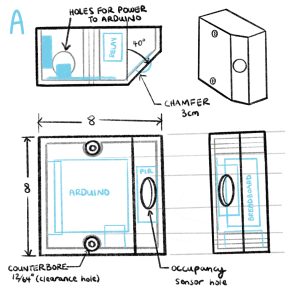 A
HOLES FOR POWER
TO ARDUINO
RELAY
40°
CHAMFER
3cm
8
8
ARDUINO
PIR
BREADBOARD
COUNTERBORE
12/64" (clearance hole)
OCCUPANCY
sensor hole